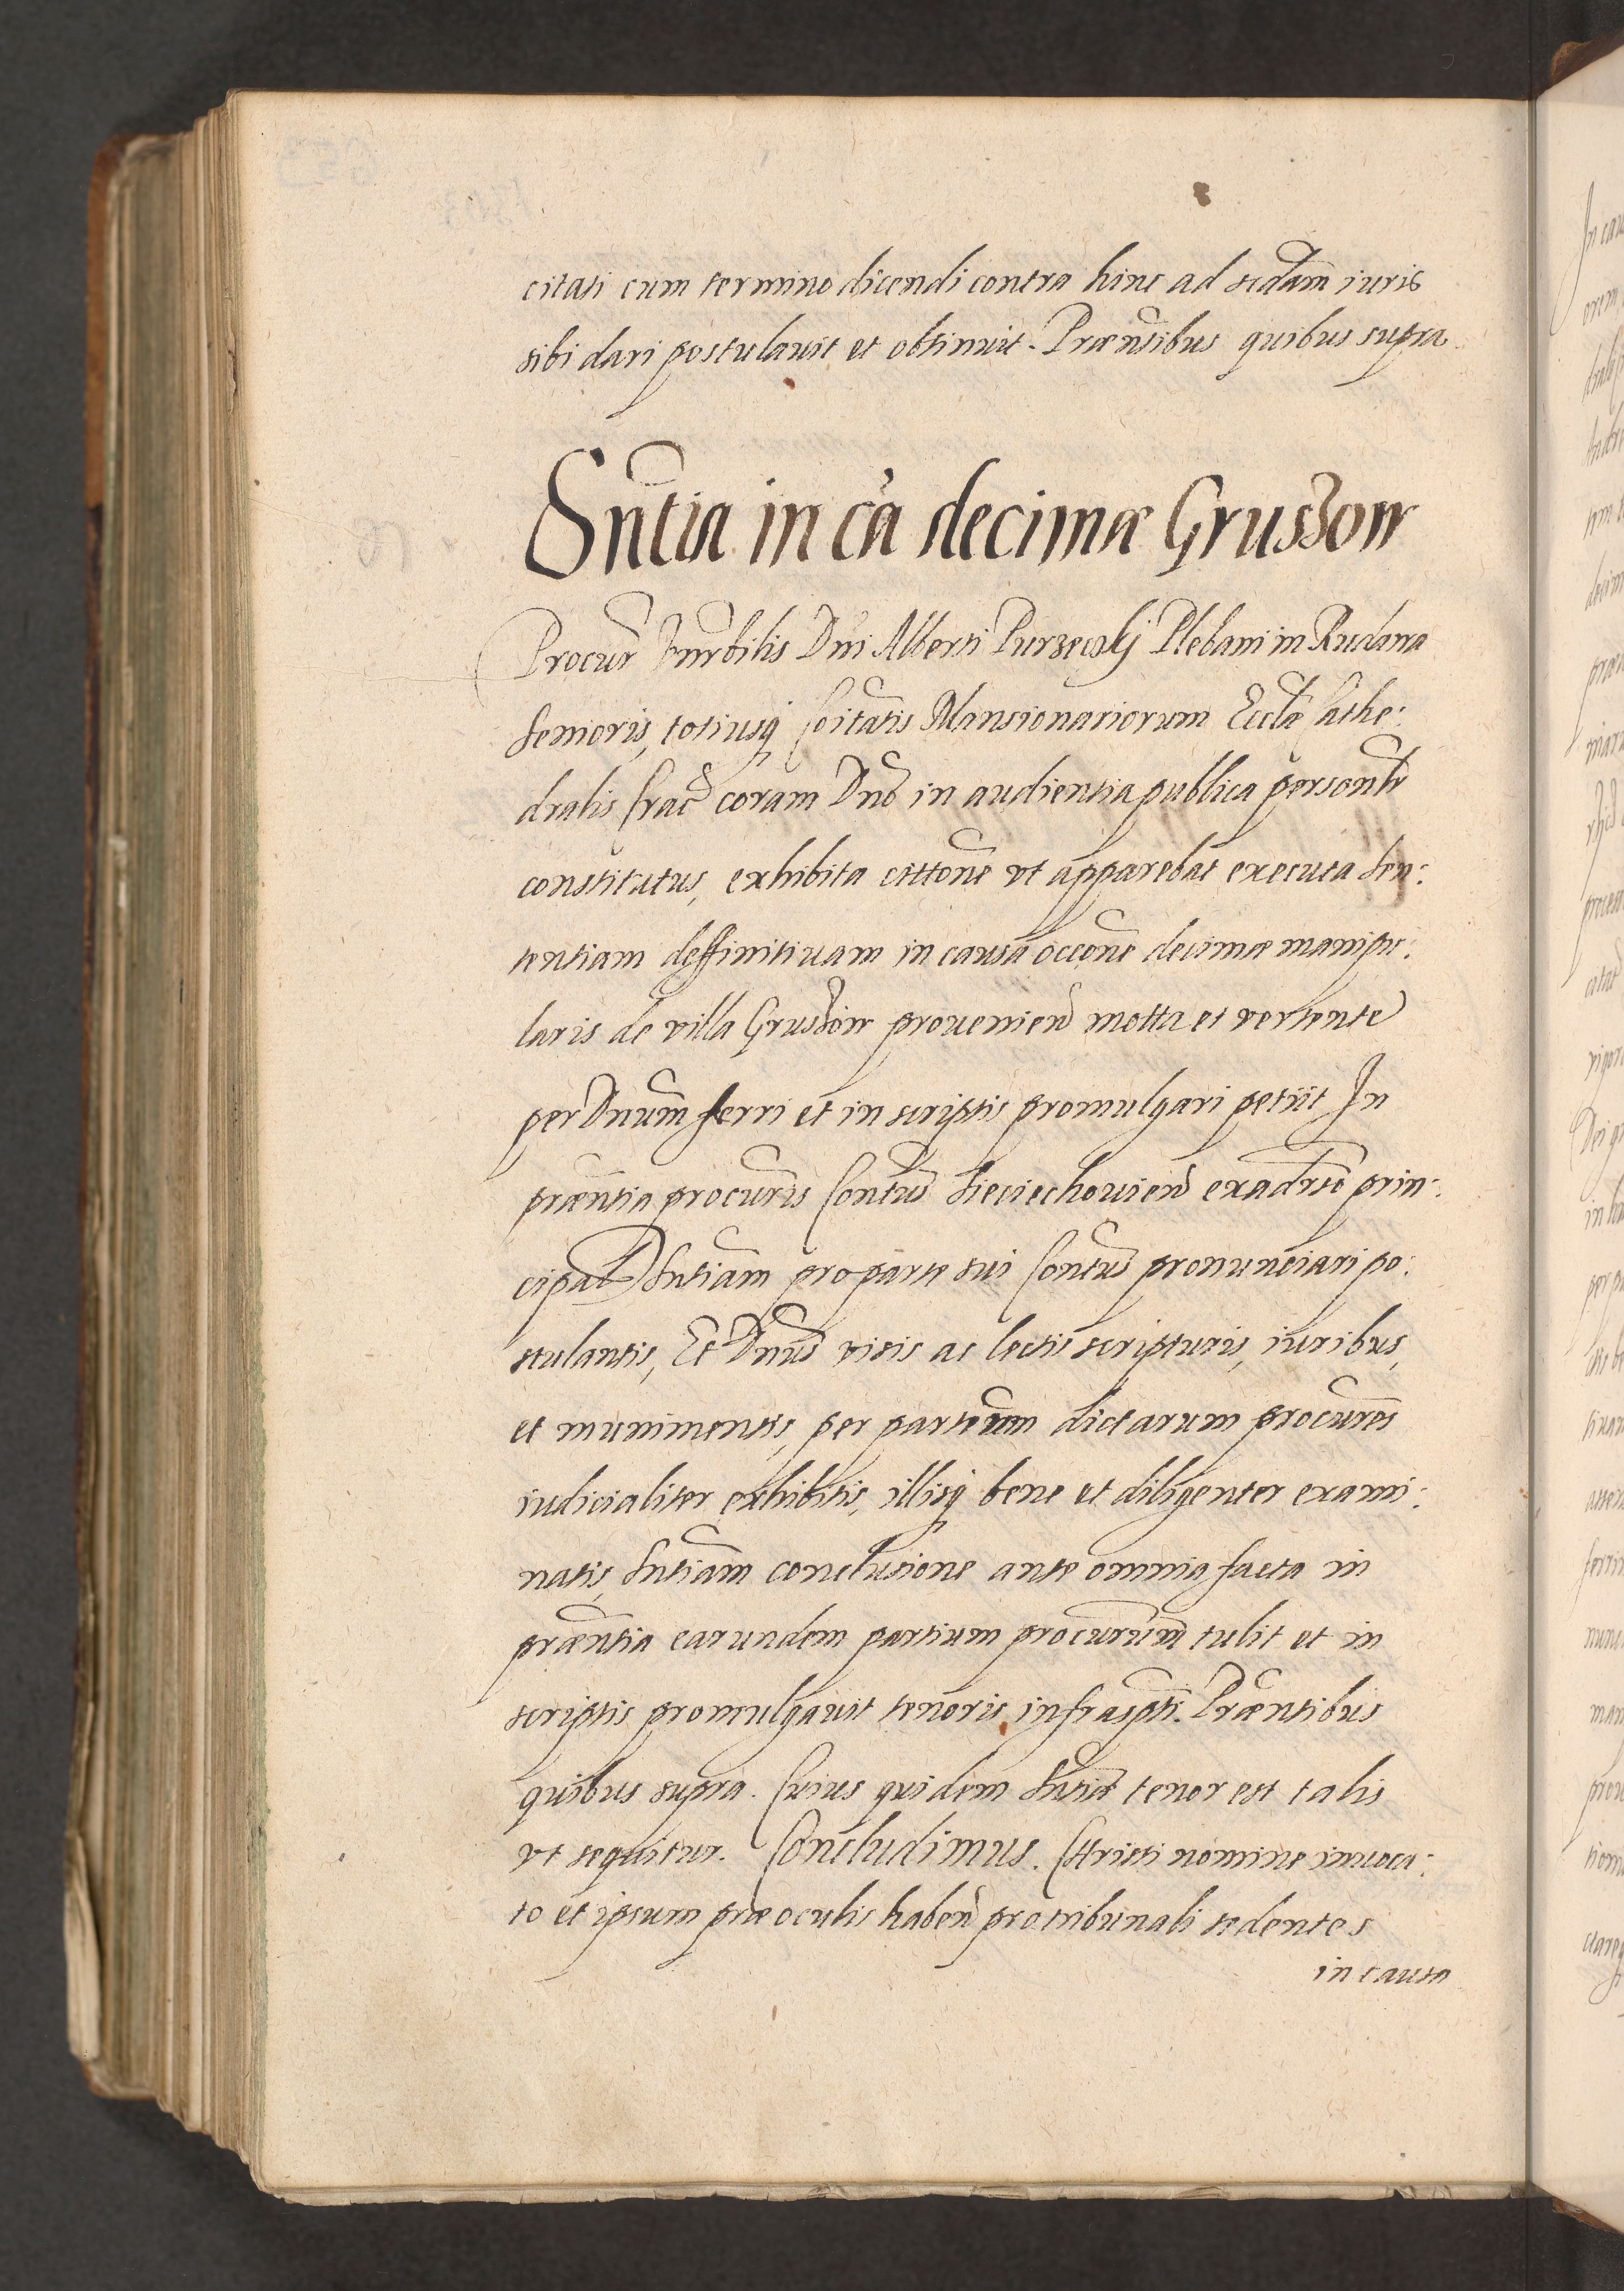 citati cum termino dicendi contra hinc ad scdam iuris
sibi dari postulauit et obtinuit. Præntibus quibus supra
Sntia in ca decimæ Grussow
Procur Dni Alberti Plebani in Rudawa
Senioris, totiusq Coitatis Mansionariorum Ecclæ Cathe:
dralis Crac coram Dno in audientia publica personlr
constitutus, exhibita cittone vt apparebat executa Sen:
tentiam deffinitiuam in causa occone decimæ manipu:
laris de villa Grussow prouenien motta et vertente
per Dnum ferri et in scriptis promulgari petiit In
præntia procuris Contus Sieciechouien exadrso prin:
cipal Sntiam pro parte sui Contus pronunciari po:
stulantis, Et Dnus visis ac lectis scripturis, iuribus,
et munimentis, per partium dictarum procures
iudicialiter exhibitis, illisq bene et diligenter exami:
natis, Sntiam conclusione ante omnia facta in
præntia earundem partium procurum tulit et in
scriptis promulgauit tenoris infraspti. Præntibus
quibus supra. Cuius quidem Sntiæ tenor est talis
vt sequitur. Concludimus. Christi nomine inuoca:
to et ipsum præ oculis haben pro tribunali sedentes
in causa